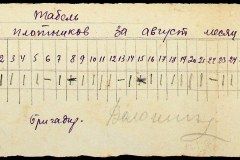 Табель
плотников за август месяц
2 3 4 5 6 7 8 9 10 11 12 13 14 15 16 17 18 19 20 21 22 23 24
Бригадир